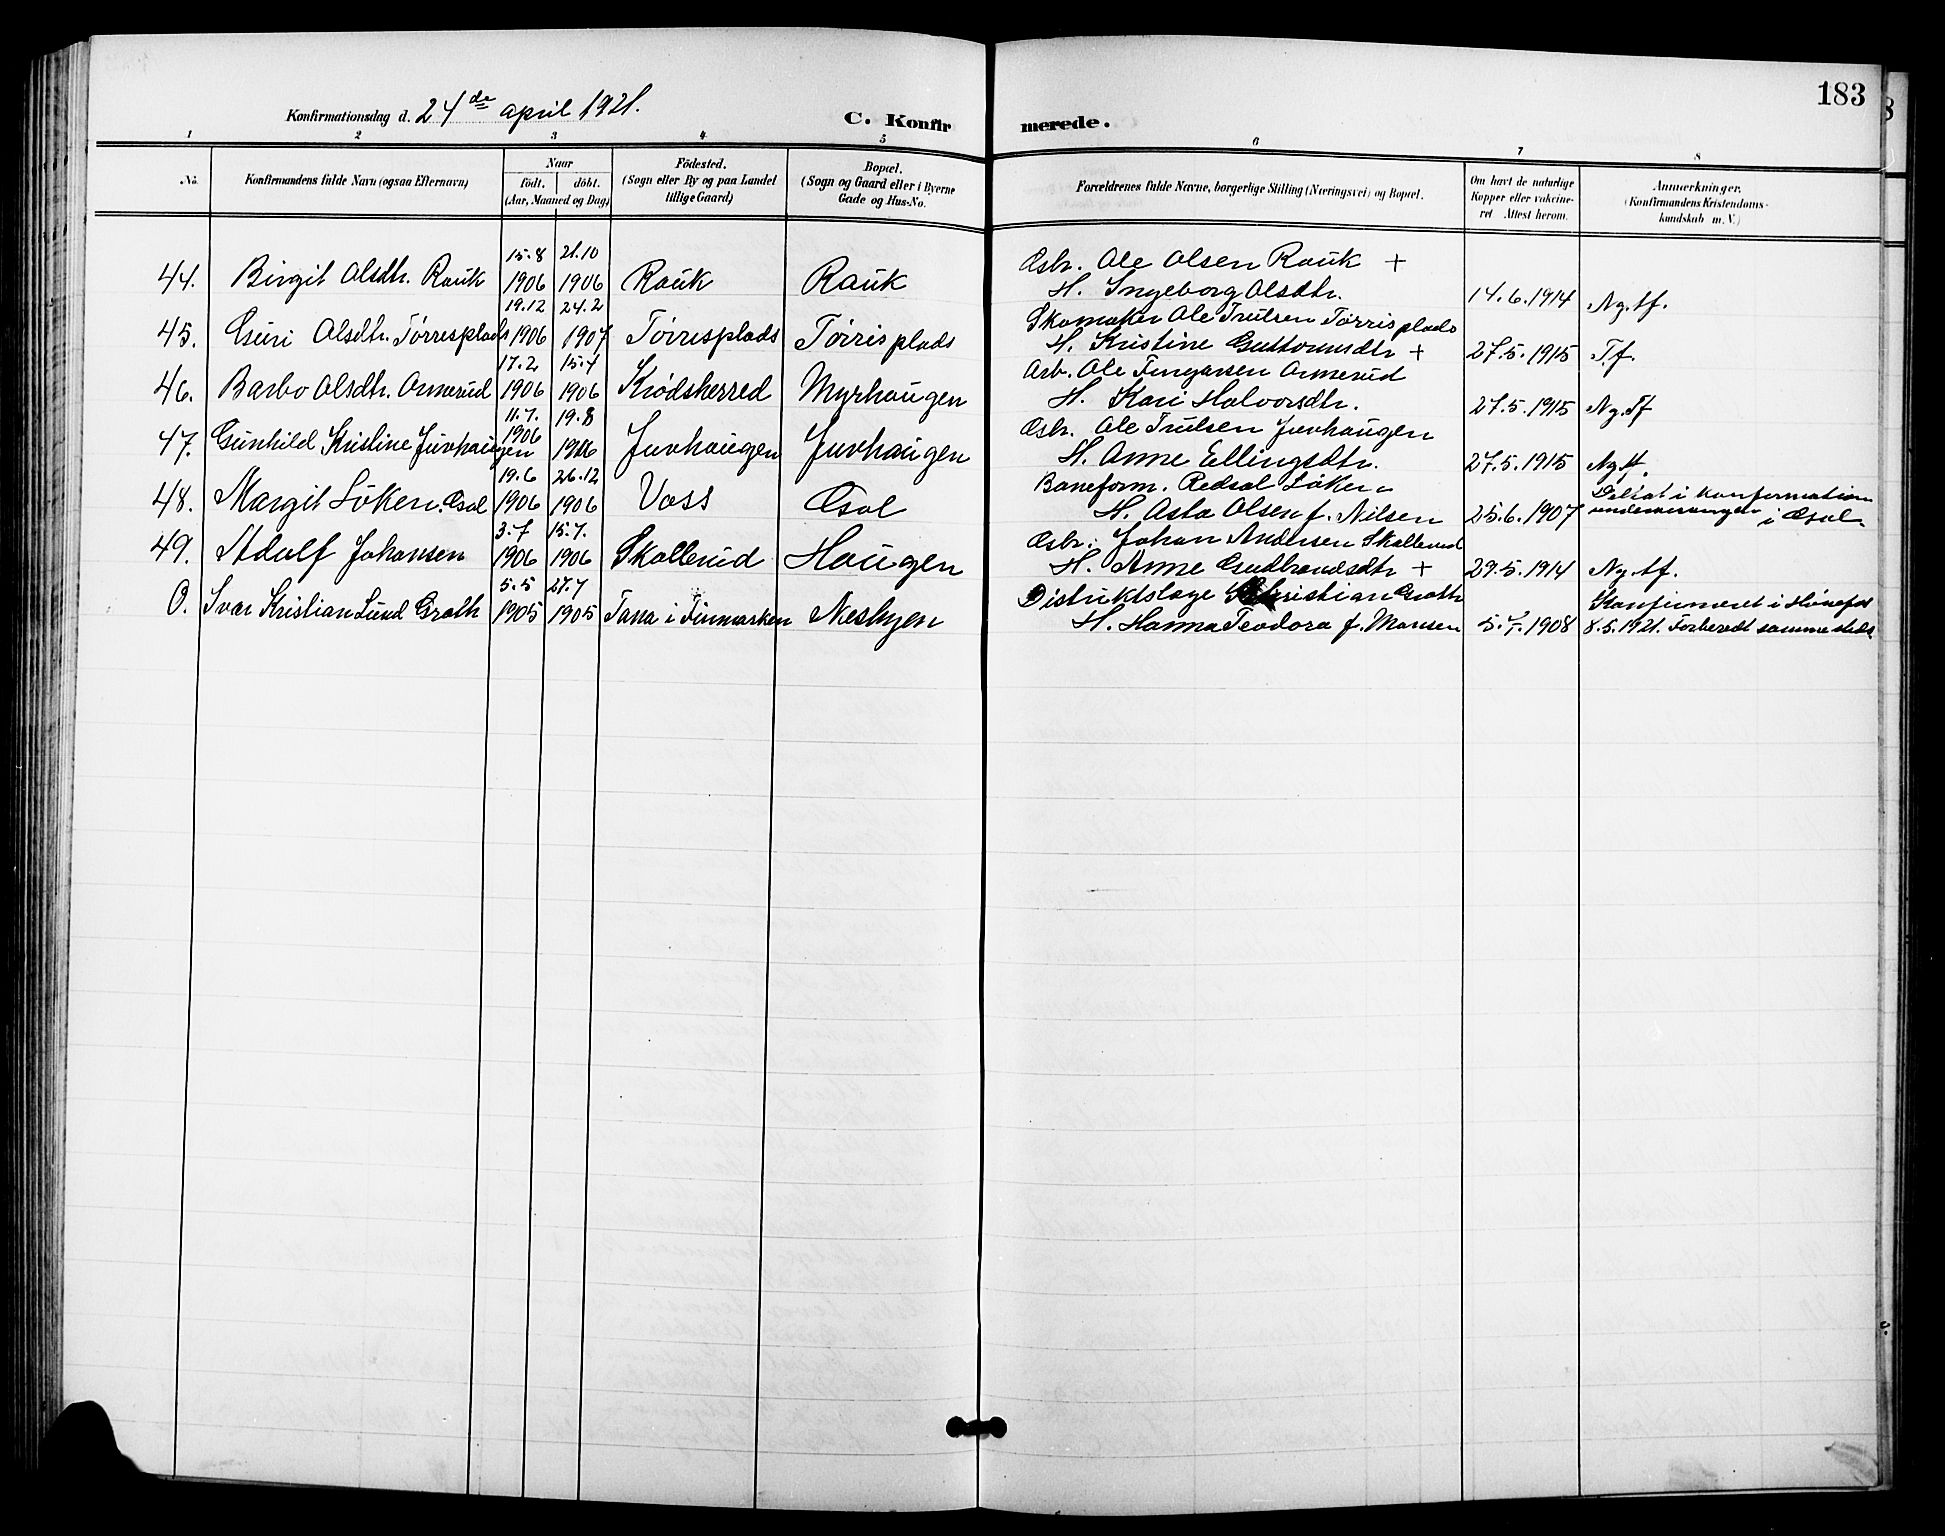 183
Konfirmationsdag d. 24de april 1921.
C. Konfirmerede.
1 2 3 4 5 6 7 8
No.
Konfirmandens fulde Navn (ogsaa Efternavn)
Naar
født. døbt.
(Aar, Maaned og Dag)
Födested.
(Sogn eller By og paa Landet
tillige Gaard)
Bopæl.
(Sogn og Gaard eller i Byerne
Gade og Hus-No.
Forældrenes fulde Navne, borgerlige Stilling (Næringsvei) og Bopæl.
Om havt de naturlige
Kopper eller vakcine-
ret Attest herom.
Anmærkninger.
(Konfirmandens Kristendoms-
kundskab m. V.)
15.8 21.10 Ole Olsen Rauk +
44. Birgit Olsdtr. Rauk 1906 1906 Rauk Rauk H. Ingeborg Olsdtr. 14.6.1914 Ng. tf.
19.12 24.2 Skomaker Ole Trulsen Tørrisplads
45. Guri Olsdtr. Tørresplads 1906 1907 Tørrisplads Tørrisplads H. Kristine Guttormsdtr + 27.5.1915 T.f.
17.2 15.4 Arb. Ole Fingarsen Ormerud
46. Barbo Olsdtr. Ormerud 1906 1906 Krødsherred Myrhaugen H. Kari Halvorsdtr. 27.5.1915 Ng. Tf
11.7. 19.8 Ole Trulsen Juvhaugen
47. Gunhild Kristine Juvhaugen 1906 1906 Juvhaugen Juvhaugen H. Anne Ellingsdtr. 27.5.1915 Ng. tf.
19.6 26.12 Baneform. Løken
48. Margit Löken. Gol 1906 1906 Voss Gol H. Asta Olsen f. Nilsen 25.6.1907 Deltat i konfirmation i Gol
3.7 15.7. Johan Andersen Skollerud
49. Adolf Johansen 1906 1906 Skollerud Haugen H. Anne Gudbrandsdtr + 29.5.1914 Ng. tf.
5.5 27.7 Distriktslæge Christian Groth
0. Ivar Kristian Lund Groth 1905 1905 Tana i Finmarken Nesbyen H. Hanna Teodora f. Monsen 1908 Konfirmeret i Hønefos
8.5.1921. Forberedt sammesteds